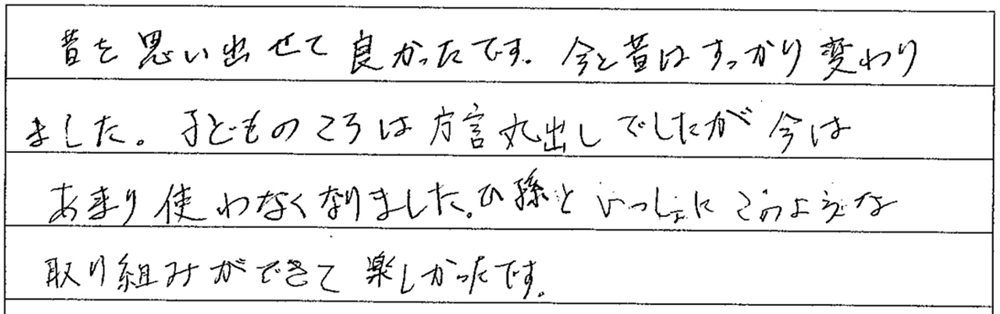 昔を思い出せて良かったです。今と昔はすっかり変わり
ました。子どものころは方言丸出しでしたが今は
あまり使わなくなりました。ひ孫といっしょにこのような
取り組みができて楽しかったです。